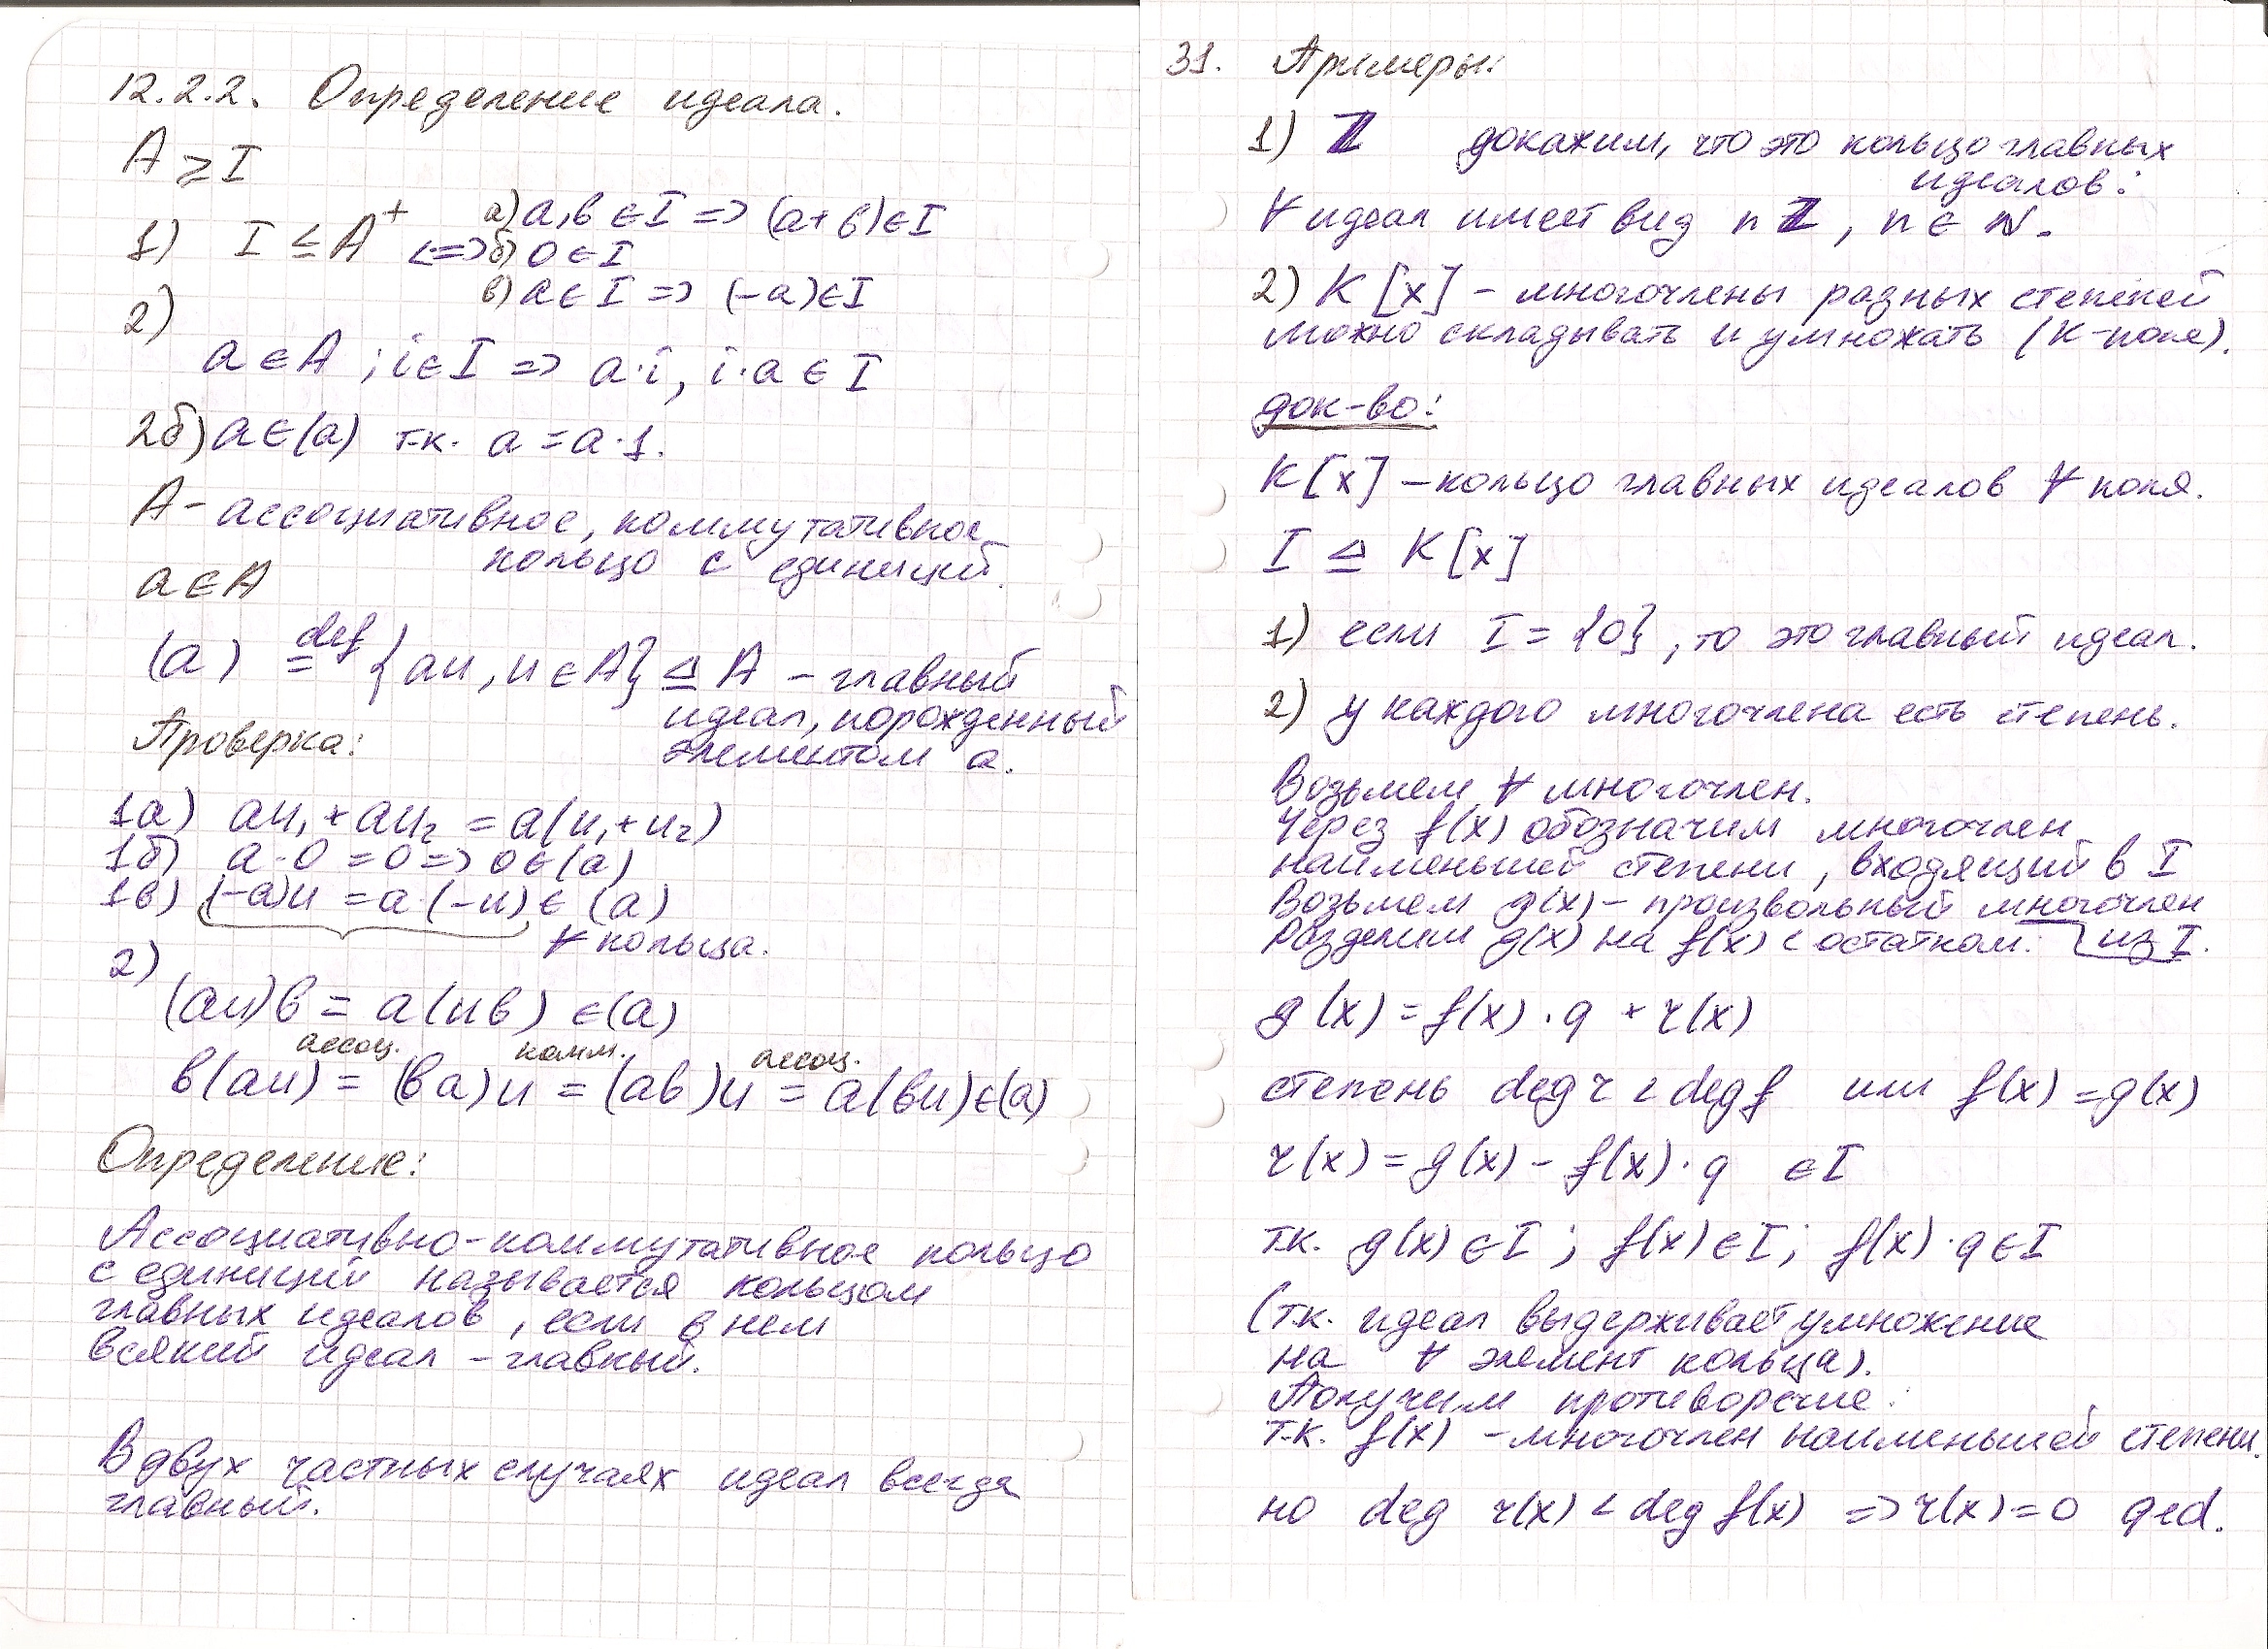 12.2.2. Определение идеала.
A ⩾ I
1) I ≤ A⁺ <=> а) a, b ∈ I => (a+b) ∈ I
б) 0 ∈ I
в) a ∈ I => (-a) ∈ I
2)
a ∈ A ; i ∈ I => a·i, i·a ∈ I
2б) a ∈ (a) т.к. a = a·1.
A - ассоциативное, коммутативное
кольцо с единицей.
a ∈ A
(a) def= {au, u ∈ A} ⊴ A - главный
идеал, порожденный
элементом a.
Проверка:
1а) au₁ + au₂ = a(u₁+u₂)
1б) a·0 = 0 => 0 ∈ (a)
1в) (-a)u = a·(-u) ∈ (a)
∀ кольца.
2)
(au)b = a(ub) ∈ (a)
ассоц. комм. ассоц.
b(au) = (ba)u = (ab)u = a(bu) ∈ (a)
Определение:
Ассоциативно-коммутативное кольцо
с единицей называется кольцом
главных идеалов, если в нем
всякий идеал - главный.
В двух частных случаях идеал всегда
главный.
31. Примеры:
1) ℤ докажим, что это кольцо главных
идеалов:
∀ идеал имеет вид nℤ, n ∈ N.
2) K[x] - многочлены разных степеней
можно складывать и умножать (K-поле).
док-во:
K[x] - кольцо главных идеалов ∀ поля.
I ⊴ K[x]
1) если I = {0}, то это главный идеал.
2) у каждого многочлена есть степень.
Возьмем ∀ многочлен.
Через f(x) обозначим многочлен
наименьшей степени, входящий в I
Возьмем g(x) - произвольный многочлен
Разделим g(x) на f(x) с остатком. из I.
g(x) = f(x)·q + r(x)
степень deg r < deg f или f(x) = g(x)
r(x) = g(x) - f(x)·q ∈ I
т.к. g(x) ∈ I ; f(x) ∈ I; f(x)·q ∈ I
(т.к. идеал выдерживает умножение
на ∀ элемент кольца).
Получим противоречие:
т.к. f(x) - многочлен наименьшей степени.
но deg r(x) < deg f(x) => r(x) = 0 qed.